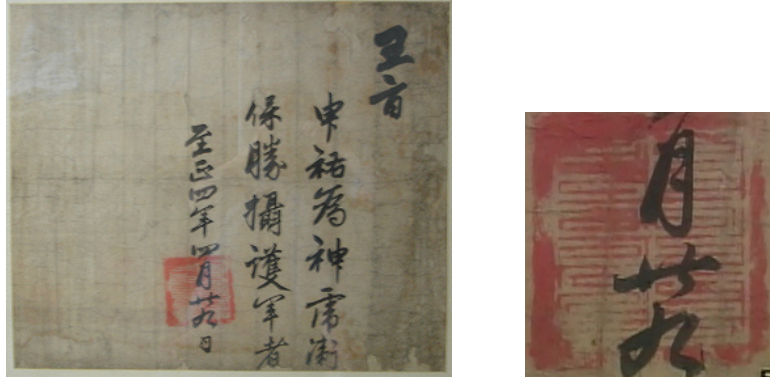 王旨
申祐爲神虎衛
保勝攝護軍者
至正四年四月廿九日
月廿九